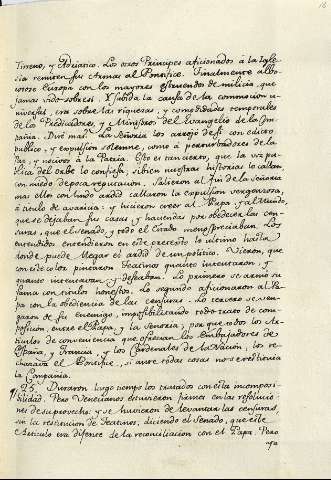 Tirreno, y Adriatico. Los otros Principes aficionados à la Igle-
sia remiten sus Armas al Pontifice. Finalmente albo-
rotose Europa con los mayores estruendos de milicia, que
jamas vido sobre si. Y sabida la causa de la commocion u-
niversal, era sobre las riquezas, y comodidades temporales
de los Predicadores, y Ministros del Evangelio de la Com-
pañia. Diré mas: la Señoria los arrojó de si con edicto
publico, y expulsion solemne, como à perturbadores de la
Paz, y nocivos à la Patria. Esto es tan cierto, que la ma
del orbe lo confiesa, si bien nuestras historias lo callan
con miedo de poca reputacion. Salieron al fin de la Señoria
mas ellos con lindo ardid callaron la expulsion vergonzosa,
à titulo de avaricia, y hicieron creer al Papa, y al Mundo,
que se dejaban sus casas, y haciendas por obedecer las cen-
suras, que el Senado, y todo el Estado menospreciaban. Los
entendidos entendieron en este pretexto lo ultimo hasta
donde puede llegar el ardid de un politico. Vieron, que
con este color pintaron Teatinos quanto intentaron, y
quanto intentaron, y deseaban. Lo primero se armó su
fama con titulos honestos. Lo segundo aficionaron al Pa-
pa con la obediencia de las censuras. Lo tercero se ven-
garon de su enemigo, imposibilitando todo trato de com-
posicion, entre el Papa, y la Señoria, porque todos los Ar-
ticulos de conveniencia que ofrecian los Embajadores de
España, y Francia, y los Cardenales de la Nacion, los re-
chazava el Pontifice, si ante todas cosas no se restituia
la Compania.
25. Duraron largo tiempo los tratados con esta incompo-
sibilidad. Pero Venecianos estuvieron firmes en las resolucio-
nes de su provecho: y se huvieron de levantar las censuras,
sin la restitucion de Teatinos, diciendo el Senado, que este
Articulo era difente de la reconciliacion con el Papa. Pero